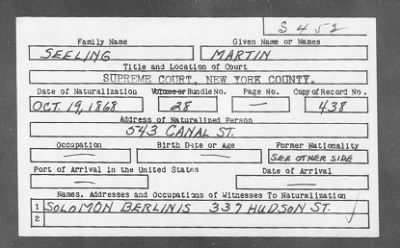 S 452
Family Name Given Name or Names
SEELING MARTIN
Title and Location of Court
SUPREME COURT, NEW YORK COUNTY.
Date of Naturalization Volume or Bundle No. Page No. Copy of Record No.
OCT. 19, 1868 28 — 438
Address of Naturalized Person
543 CANAL ST.
Occupation Birth Date or Age Former Nationality
— — SEE OTHER SIDE
Port of Arrival in the United States Date of Arrival
— —
Names, Addresses and Occupations of Witnesses To Naturalization
1 SOLOMON BERLINIS 337 HUDSON ST.
2